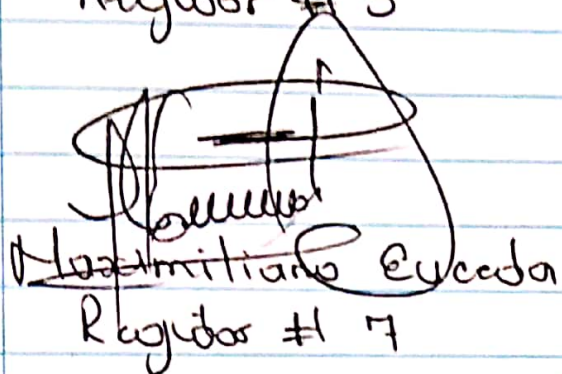 Regidor # 5
Maximiliano Euceda
Regidor # 7